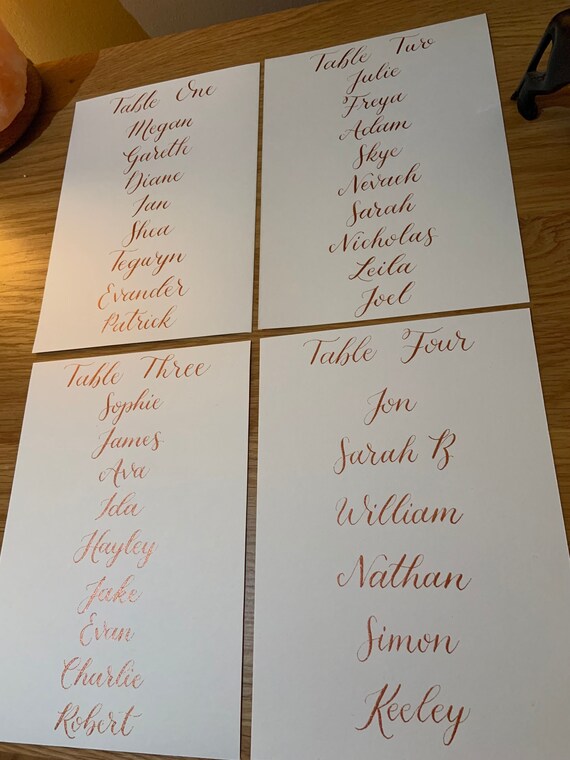 Table One
Megan
Gareth
Diane
Ian
Shea
Tegwyn
Evander
Patrick
Table Two
Julie
Freya
Adam
Skye
Nevaeh
Sarah
Nicholas
Leila
Joel
Table Three
Sophie
James
Ava
Ida
Hayley
Jake
Evan
Charlie
Robert
Table Four
Jon
Sarah B
William
Nathan
Simon
Keeley